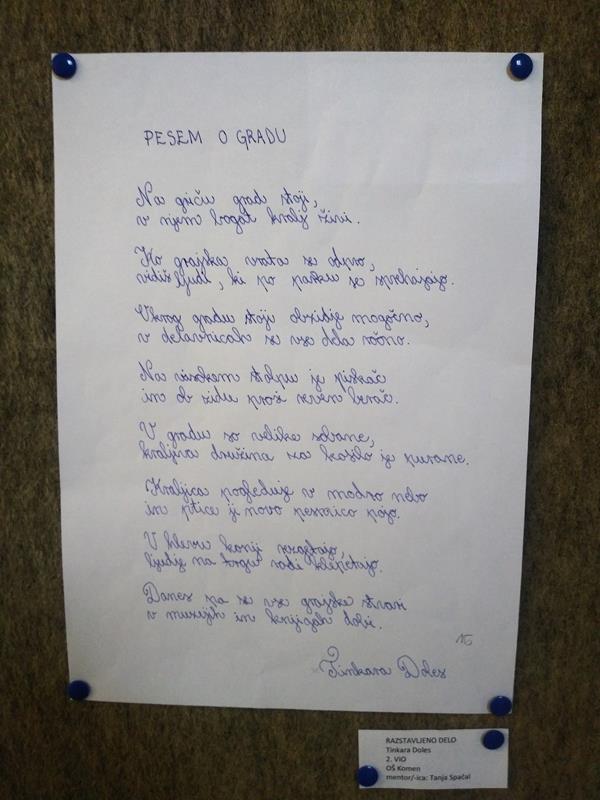 PESEM O GRADU
Na griču grad stoji,
v njem bogat kralj živi.
Ko grajska vrata se odpro,
vidiš ljudi, ki po parku se sprehajajo.
Okrog gradu stoji obzidje mogočno,
v delavnicah se vse dela ročno.
Na visokem stolpu je piskač
in ob zidu prosi reven berač.
V gradu so velike sobane,
kraljeva družina za kosilo je purane.
Kraljica pogleduje v modro nebo
in ptice ji novo pesmico pojo.
V hlevu konji rezgetajo,
ljudje na trgu radi klepetajo.
Danes pa se vse grajske stvari
v muzejih in knjigah dobi.
16
Tinkara Doles
RAZSTAVLJENO DELO
Tinkara Doles
2. VIO
OŠ Komen
mentor/-ica: Tanja Spačal